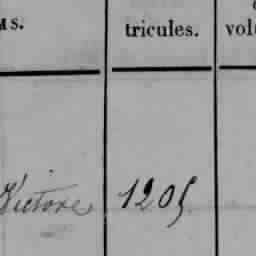 MS.
tricules.
Victore 1205